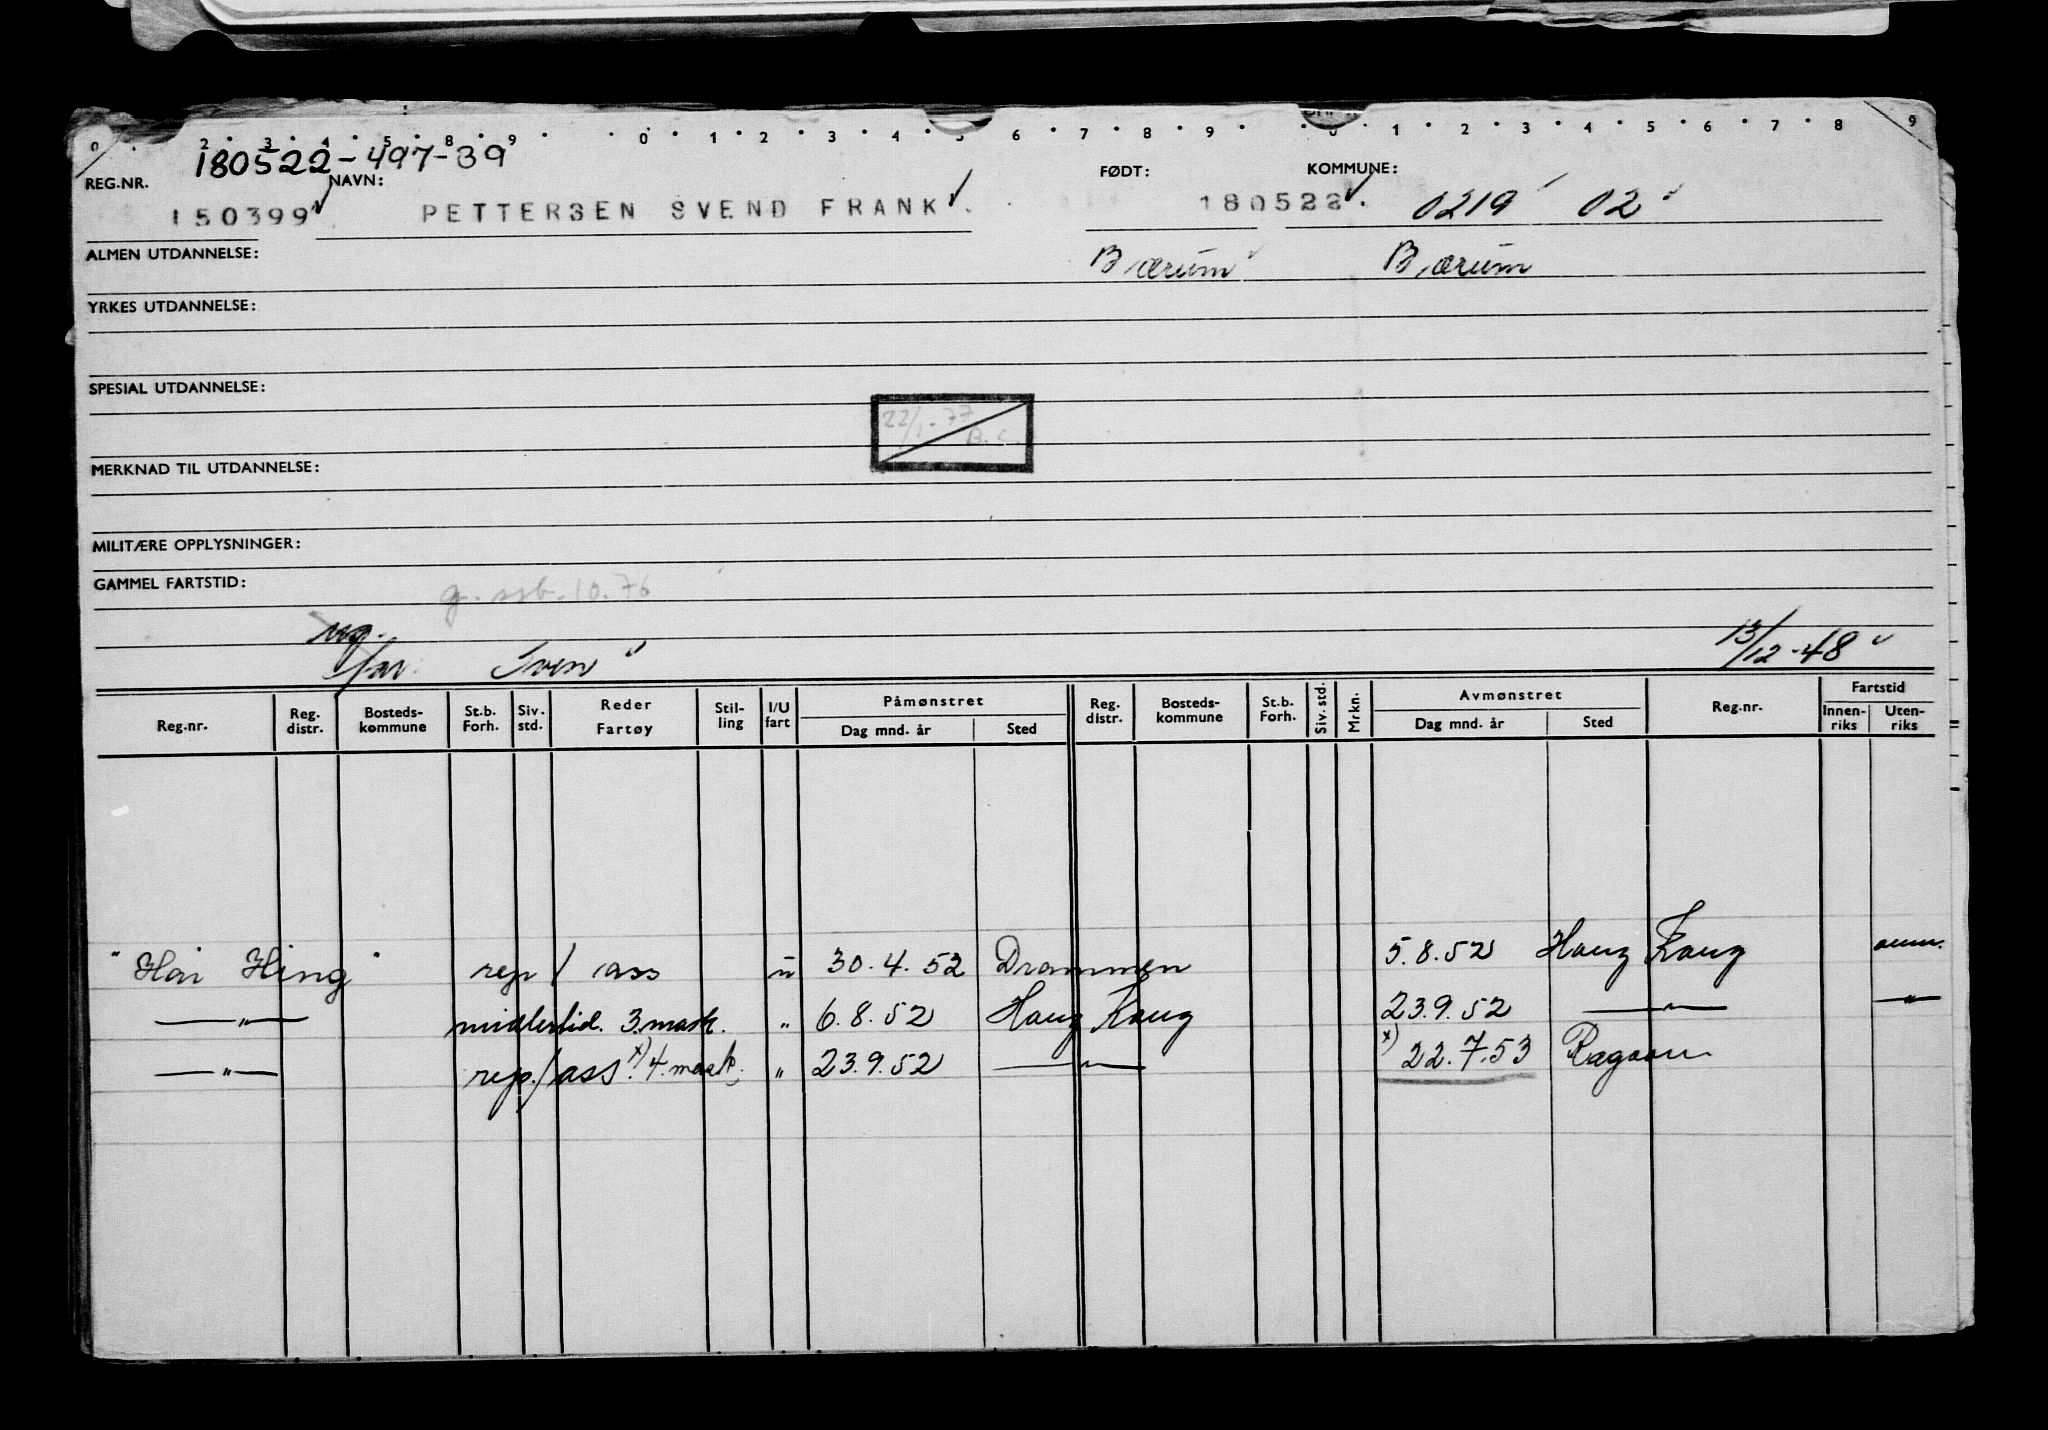 0 2 3 4 5 8 9 0 1 2 3 4 5 6 7 8 9 0 1 2 3 4 5 6 7 8 9
180522-497-39
REG.NR. NAVN: FØDT: KOMMUNE:
150399 PETTERSEN SVEND FRANK 180522 0219 02
ALMEN UTDANNELSE: Bærum Bærum
YRKES UTDANNELSE:
SPESIAL UTDANNELSE:
22/1-77
B.C.
MERKNAD TIL UTDANNELSE:
MILITÆRE OPPLYSNINGER:
GAMMEL FARTSTID:
g. sjb. 10.76
ug.
far Sven 13/12-48
Reg.nr. Reg. distr. Bosteds-kommune St.b. Forh. Siv. std. Reder Fartøy Stil-ling I/U fart Påmønstret Dag mnd. år Sted Reg. distr. Bosteds-kommune St.b. Forh. Siv. std. Mrkn. Avmønstret Dag mnd. år Sted Reg.nr. Fartstid Innen-riks Uten-riks
"Hai Hing" rep / ass u 30.4.52 Drammen 5.8.52 Hong Kong
—"— midlertid. 3. mask. " 6.8.52 Hong Kong 23.9.52 —"— —"—
—"— rep./ass. x) 4. mask. " 23.9.52 —"— x) 22.7.53 Ragoon